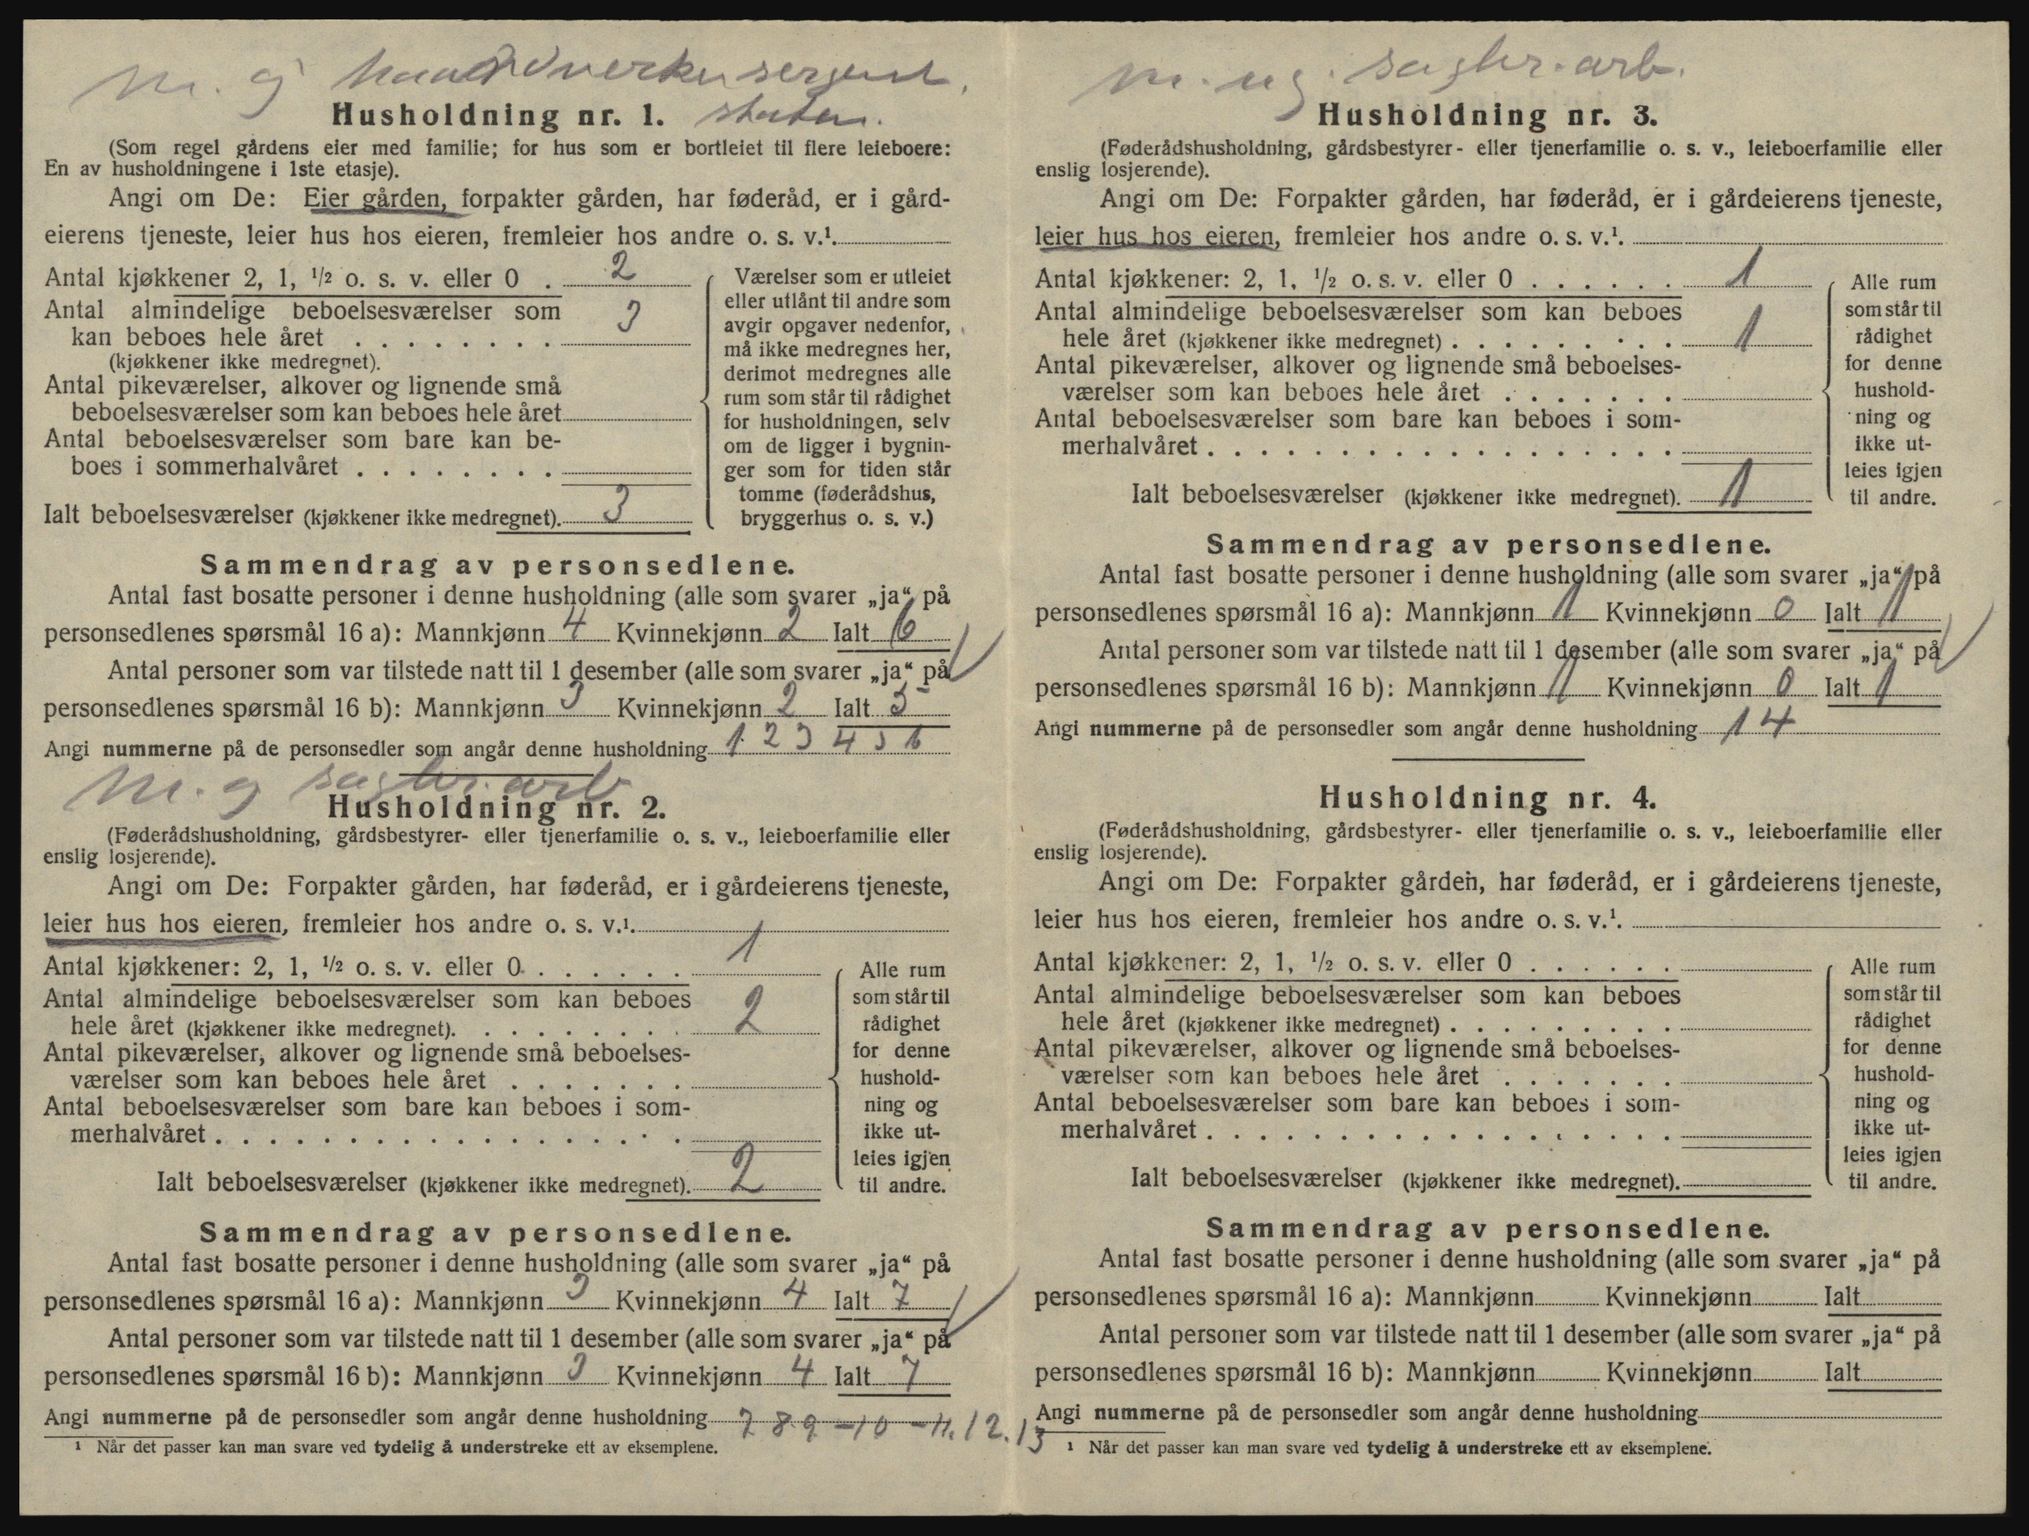 m. g haandverkersersjant
Husholdning nr. 1. staten.
(Som regel gårdens eier med familie; for hus som er bortleiet til flere leieboere:
En av husholdningene i 1ste etasje).
Angi om De: Eier gården, forpakter gården, har føderåd, er i gård-
eierens tjeneste, leier hus hos eieren, fremleier hos andre o. s. v.¹.
Antal kjøkkener 2, 1, ½ o. s. v. eller 0 . 2
Antal almindelige beboelsesværelser som
kan beboes hele året . . . . . . . . 3
(kjøkkener ikke medregnet).
Antal pikeværelser, alkover og lignende små
beboelsesværelser som kan beboes hele året
Antal beboelsesværelser som bare kan be-
boes i sommerhalvåret . . . . . . . .
Ialt beboelsesværelser (kjøkkener ikke medregnet). 3
Værelser som er utleiet
eller utlånt til andre som
avgir opgaver nedenfor,
må ikke medregnes her,
derimot medregnes alle
rum som står til rådighet
for husholdningen, selv
om de ligger i bygnin-
ger som for tiden står
tomme (føderådshus,
bryggerhus o. s. v.)
Sammendrag av personsedlene.
Antal fast bosatte personer i denne husholdning (alle som svarer „ja“ på
personsedlenes spørsmål 16 a): Mannkjønn 4 Kvinnekjønn 2 Ialt 6
Antal personer som var tilstede natt til 1 desember (alle som svarer „ja“ på
personsedlenes spørsmål 16 b): Mannkjønn 3 Kvinnekjønn 2 Ialt 5
Angi nummerne på de personsedler som angår denne husholdning 1 2 3 4 5 6
m. g sagbr. arb
Husholdning nr. 2.
(Føderådshusholdning, gårdsbestyrer- eller tjenerfamilie o. s. v., leieboerfamilie eller
enslig losjerende).
Angi om De: Forpakter gården, har føderåd, er i gårdeierens tjeneste,
leier hus hos eieren, fremleier hos andre o. s. v.¹.
Antal kjøkkener: 2, 1, ½ o. s. v. eller 0 . . . . . . 1
Antal almindelige beboelsesværelser som kan beboes
hele året (kjøkkener ikke medregnet). . . . . . . . . 2
Antal pikeværelser, alkover og lignende små beboelses-
værelser som kan beboes hele året . . . . . . .
Antal beboelsesværelser som bare kan beboes i som-
merhalvåret . . . . . . . . . . . . . . . . . .
Ialt beboelsesværelser (kjøkkener ikke medregnet). 2
Alle rum
som står til
rådighet
for denne
hushold-
ning og
ikke ut-
leies igjen
til andre.
Sammendrag av personsedlene.
Antal fast bosatte personer i denne husholdning (alle som svarer „ja“ på
personsedlenes spørsmål 16 a): Mannkjønn 3 Kvinnekjønn 4 Ialt 7
Antal personer som var tilstede natt til 1 desember (alle som svarer „ja“ på
personsedlenes spørsmål 16 b): Mannkjønn 3 Kvinnekjønn 4 Ialt 7
Angi nummerne på de personsedler som angår denne husholdning 7 8 9 - 10 - 11. 12. 13
¹ Når det passer kan man svare ved tydelig å understreke ett av eksemplene.
m. ug. sagbr. arb.
Husholdning nr. 3.
(Føderådshusholdning, gårdsbestyrer- eller tjenerfamilie o. s. v., leieboerfamilie eller
enslig losjerende).
Angi om De: Forpakter gården, har føderåd, er i gårdeierens tjeneste,
leier hus hos eieren, fremleier hos andre o. s. v.¹.
Antal kjøkkener: 2, 1, ½ o. s. v. eller 0 . . . . . . 1
Antal almindelige beboelsesværelser som kan beboes
hele året (kjøkkener ikke medregnet) . . . . . . . . . 1
Antal pikeværelser, alkover og lignende små beboelses-
værelser som kan beboes hele året . . . . . . .
Antal beboelsesværelser som bare kan beboes i som-
merhalvåret . . . . . . . . . . . . . . . . . .
Ialt beboelsesværelser (kjøkkener ikke medregnet). 1
Alle rum
som står til
rådighet
for denne
hushold-
ning og
ikke ut-
leies igjen
til andre.
Sammendrag av personsedlene.
Antal fast bosatte personer i denne husholdning (alle som svarer „ja“ på
personsedlenes spørsmål 16 a): Mannkjønn 1 Kvinnekjønn 0 Ialt 1
Antal personer som var tilstede natt til 1 desember (alle som svarer „ja“ på
personsedlenes spørsmål 16 b): Mannkjønn 1 Kvinnekjønn 0 Ialt 1
Angi nummerne på de personsedler som angår denne husholdning 14
Husholdning nr. 4.
(Føderådshusholdning, gårdsbestyrer- eller tjenerfamilie o. s. v., leieboerfamilie eller
enslig losjerende).
Angi om De: Forpakter gården, har føderåd, er i gårdeierens tjeneste,
leier hus hos eieren, fremleier hos andre o. s. v.¹.
Antal kjøkkener: 2, 1, ½ o. s. v. eller 0 . . . . . .
Antal almindelige beboelsesværelser som kan beboes
hele året (kjøkkener ikke medregnet) . . . . . . . . .
Antal pikeværelser, alkover og lignende små beboelses-
værelser som kan beboes hele året . . . . . . .
Antal beboelsesværelser som bare kan beboes i som-
merhalvåret . . . . . . . . . . . . . . . . . .
Ialt beboelsesværelser (kjøkkener ikke medregnet).
Alle rum
som står til
rådighet
for denne
hushold-
ning og
ikke ut-
leies igjen
til andre.
Sammendrag av personsedlene.
Antal fast bosatte personer i denne husholdning (alle som svarer „ja“ på
personsedlenes spørsmål 16 a): Mannkjønn Kvinnekjønn Ialt
Antal personer som var tilstede natt til 1 desember (alle som svarer „ja“ på
personsedlenes spørsmål 16 b): Mannkjønn Kvinnekjønn Ialt
Angi nummerne på de personsedler som angår denne husholdning
¹ Når det passer kan man svare ved tydelig å understreke ett av eksemplene.